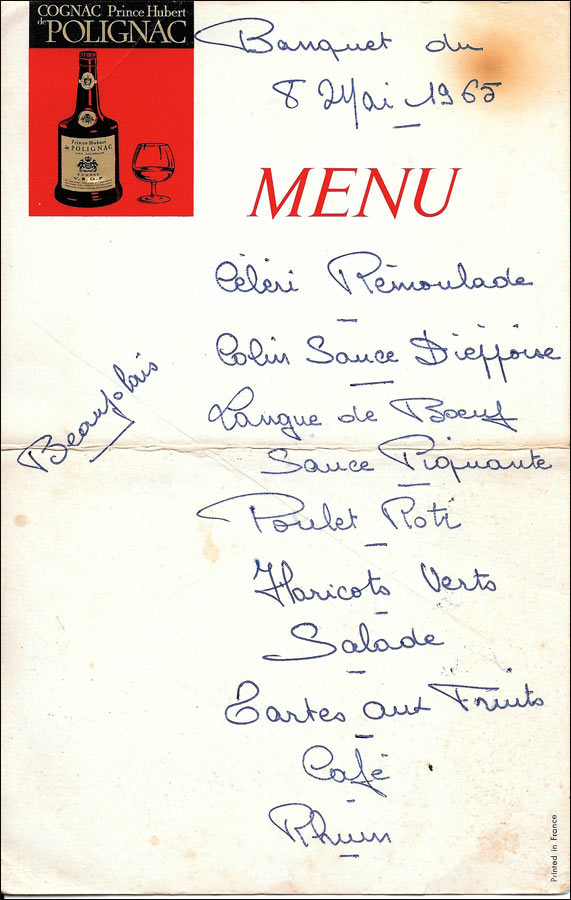 COGNAC Prince Hubert
de POLIGNAC
Prince Hubert
de POLIGNAC
COGNAC
V.S.O.P
Banquet du
8 Mai 1965
MENU
Céléri Rémoulade
Colin Sauce Dieppoise
Beaujolais
Langue de Boeuf
Sauce Piquante
Poulet Roti
Haricots Verts
Salade
Tartes aux Fruits
Café
Rhum
Printed in France